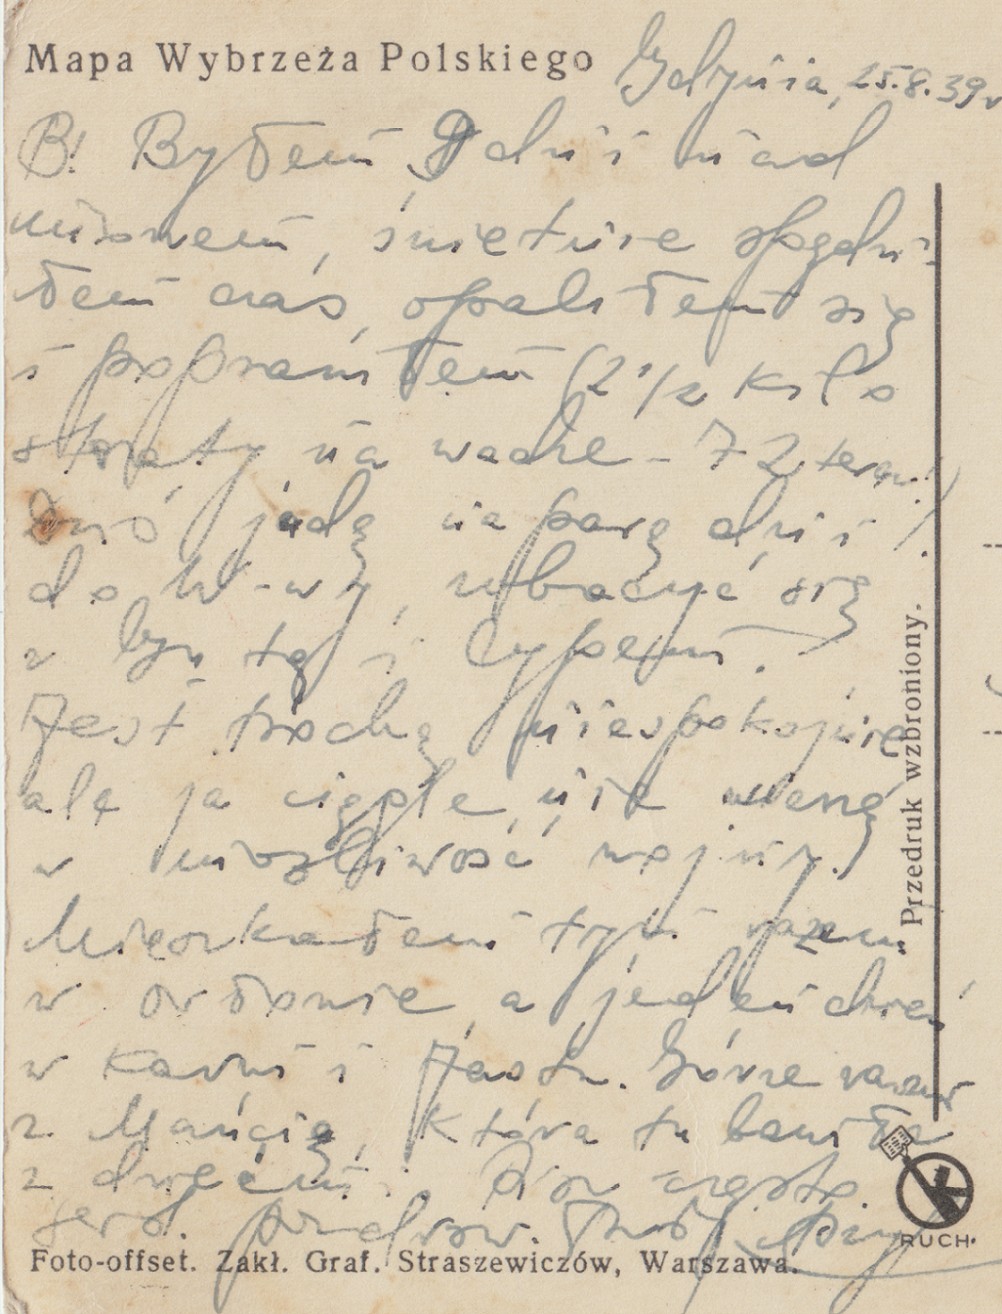 Mapa Wybrzeża Polskiego
Gdynia, 25.8.39 r
B! Byłem 9 dni nad
morzem, świetnie spędzi-
łem czas, opaliłem się
i poprawiłem (2 1/2 kilo
na wadze - 72 teraz!)
Dziś jadę na parę dni
do W-wy, zobaczyć się
z i Lypsem.
Jest trochę niespokojnie
ale ja ciągle nie wierzę
w możliwość wojny.
Mieszkałem tym razem
w Orłowie, a jeden dzień
w Karwi i Jastrz. Górze razem
z Mańcią, która tu bawiła
z dziećmi. Pisz często.
serd. pozdrow. Twój
Przedruk wzbroniony.
RUCH
Foto-offset. Zakł. Graf. Straszewiczów, Warszawa.